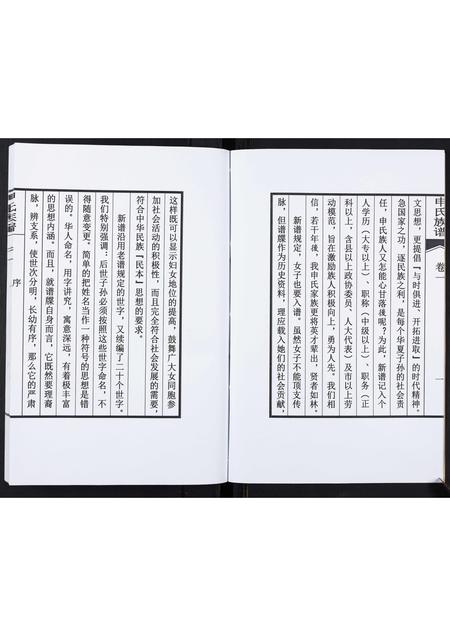 申氏族谱
卷一
一
文思想，更提倡『与时俱进、开拓进取』的时代精神。
急国家之功，逐民族之利，是每个华夏子孙的社会责
任，申氏族人又怎能心甘落後呢？为此，新谱记入个
人学历（大专以上）、职称（中级以上）、职务（正
科以上，含县以上政协委员、人大代表）及市以上劳
动模范，旨在激励族人积极向上，勇为人先。我们相
信，若干年後，我申氏家族更将英才辈出，贤者如林。
新谱规定，女子也要入谱。虽然女子不能顶支传
脉，但谱牒作为历史资料，理应载入她们的社会贡献，
这样既可以显示妇女地位的提高，鼓舞广大女同胞参
加社会活动的积极性，而且完全符合社会发展的需要，
符合中华民族『民本』思想的要求。
新谱沿用老谱规定的世字，又续编了二十个世字。
我们特别强调：后世子孙必须按照这些世字命名，不
得随意变更。简单的把姓名当作一种符号的思想是错
误的。华人命名，用字讲究，寓意深远，有着极丰富
的思想内涵。而且，就谱牒自身而言，它既然要理裔
脉，辨支系，使世次分明，长幼有序，那么它的严肃
序